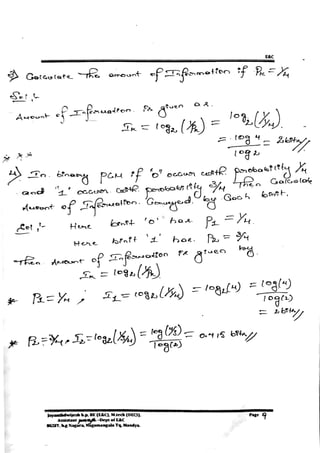 E&C
3) Calculate The amount of Information if Pk = 1/4
Sol :-
Amount of Information is given as
Ik = log2 (1/Pk) = log2 (1/1/4)
= log 4 / log 2 = 2 bits//
4) In binary PCM if '0' occurs with probability 1/4
and '1' occurs with probability 3/4 Then Calculate
Amount of Information Conveyed by Each binit.
Sol :- Here binit '0' has P1 = 1/4
Here binit '1' has P2 = 3/4
Then Amount of Information is given by
Ik = log2 (1/Pk)
* P1 = 1/4 , I1 = log2 (1/1/4) = log2 (4) = log(4) / log(2)
= 2 bits//
* P2 = 3/4 , I2 = log2 (1/3/4) = log (4/3) / log(2) = 0.415 bits//
Page 9
Assistant - Dept of E&C
BGSIT, Nagamangala Tq, Mandya.